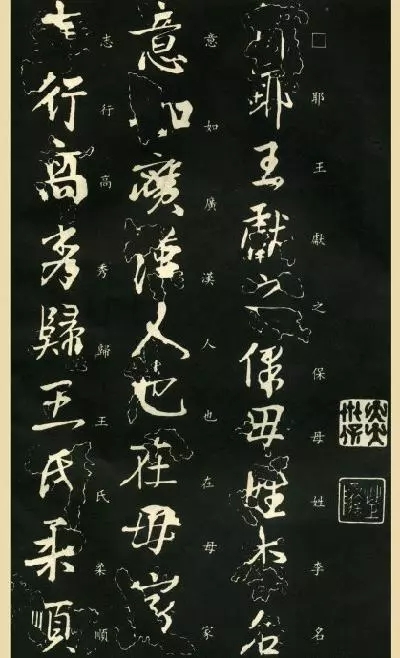 □耶王獻之保母姓李名
耶王獻之保母姓李名
意如廣漢人也在母家
意如廣漢人也在母家
志行高秀歸王氏柔順
志行高秀歸王氏柔順